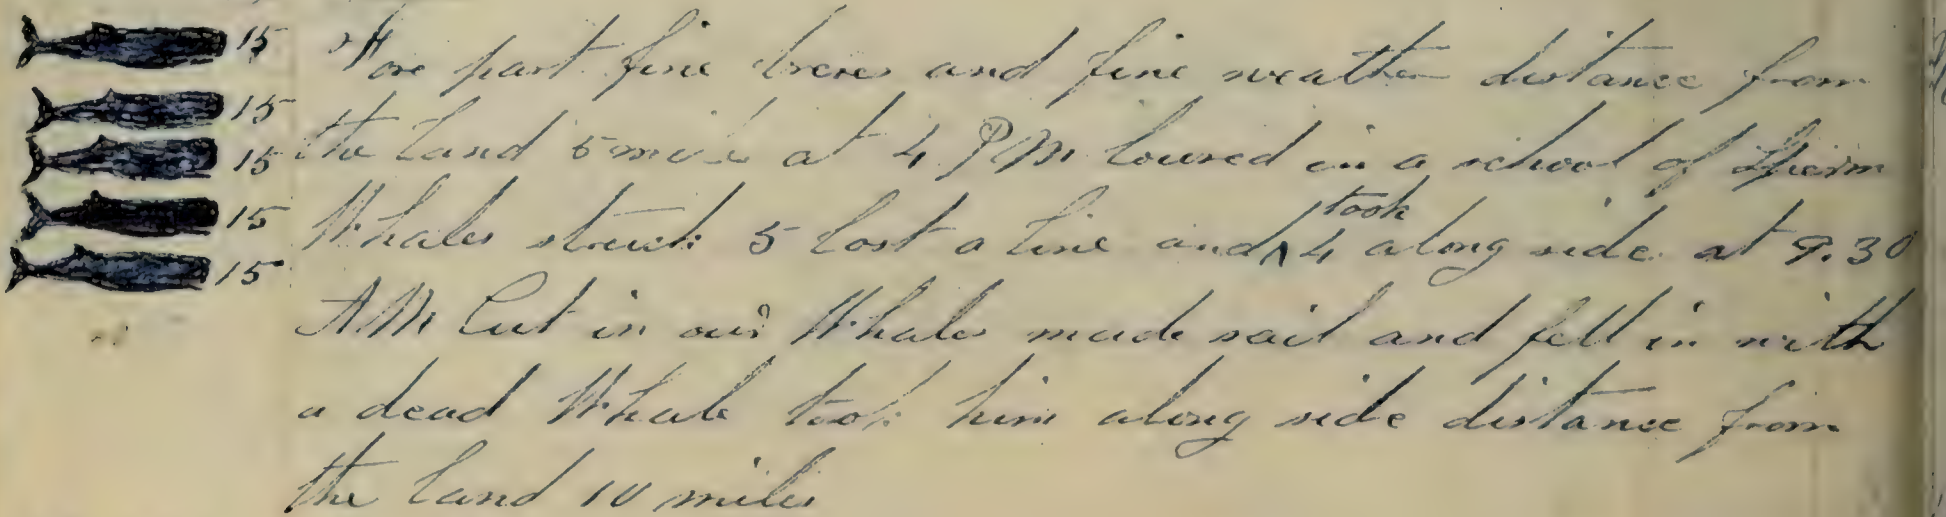 15 Fore part fine breres and fine weather distance from
15 the Land 5 miles at 4 PM loured in a school of Sperm
15 took
15 Whales struck 5 lost a line and ^ 4 along side at 9.30
15 AM Cut in our Whales made sail and fell in with
a dead Whale took him along side distance from
the land 10 miles